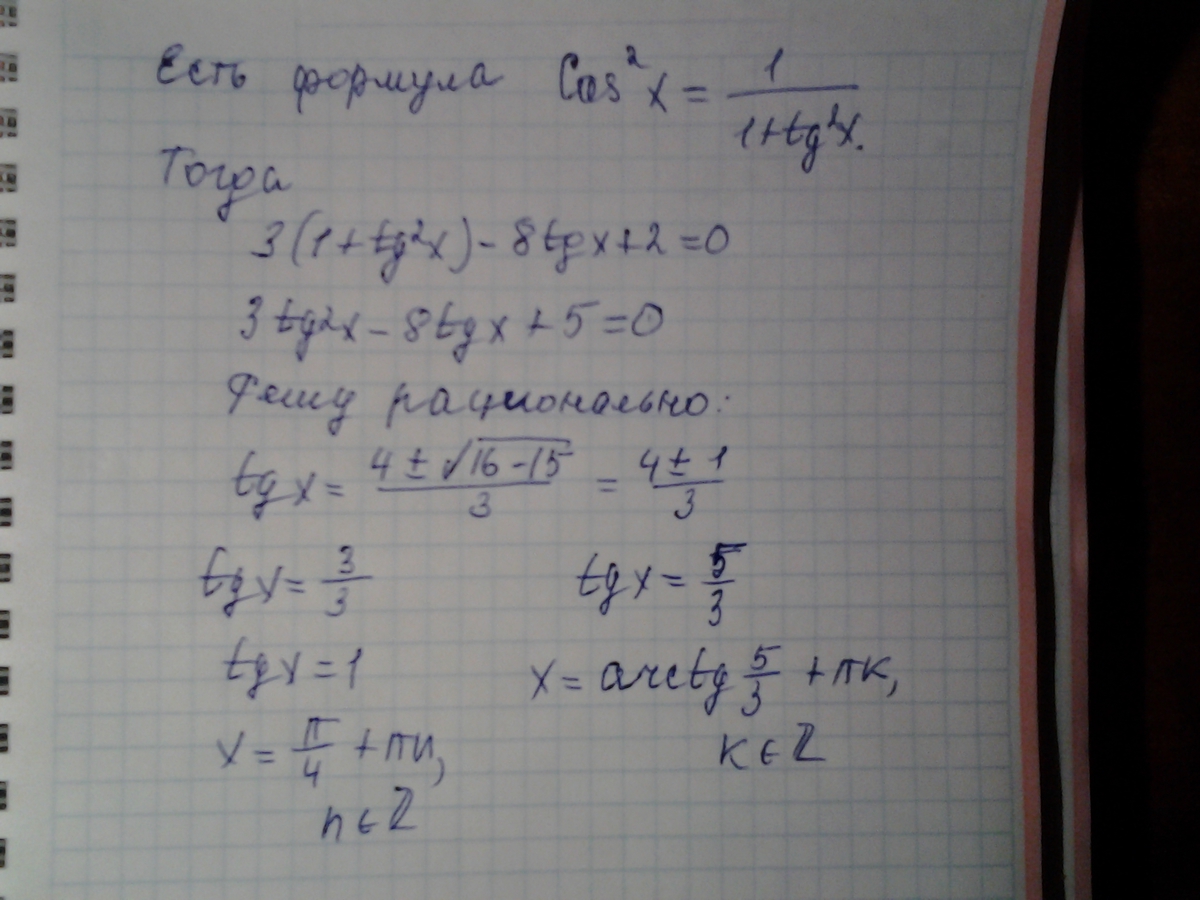 Есть формула Cos²x = 1/(1+tg²x).
Тогда
3(1+tg²x) - 8tgx+2=0
3tg²x - 8tgx + 5=0
Решу рационально:
tgx = (4±√(16-15))/3 = (4±1)/3
tgx = 3/3 tgx = 5/3
tgx = 1 x = arctg 5/3 + πk,
x = π/4 + πn, k∈Z
n∈Z